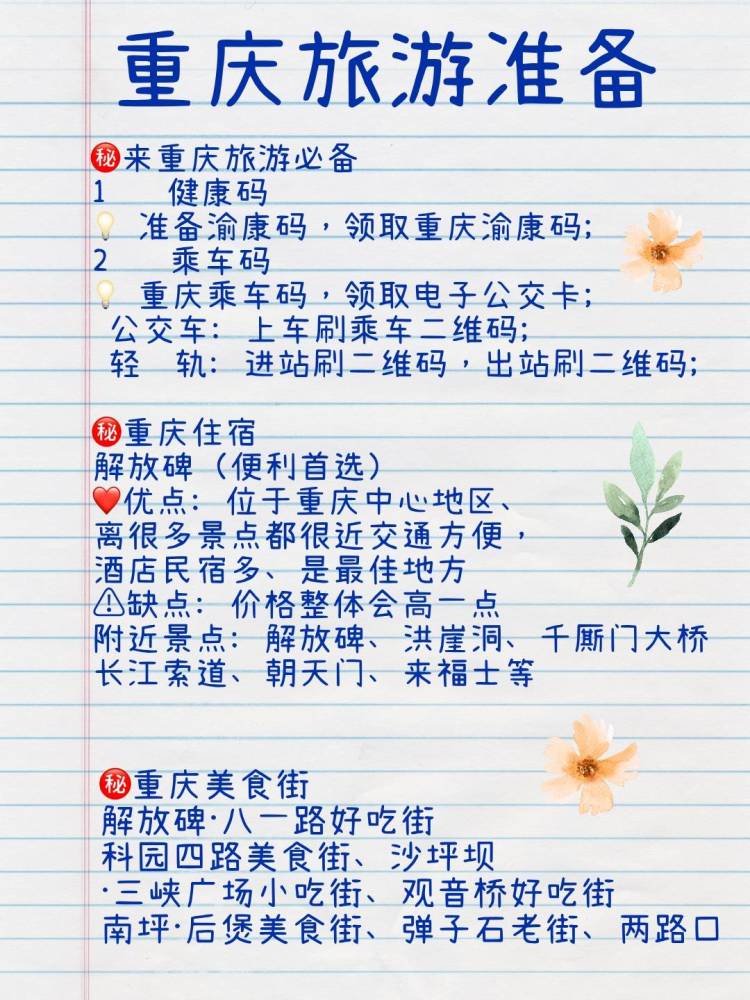 重庆旅游准备
㊙️来重庆旅游必备
1 健康码
💡 准备渝康码，领取重庆渝康码;
2 乘车码
💡 重庆乘车码，领取电子公交卡;
公交车: 上车刷乘车二维码;
轻 轨: 进站刷二维码，出站刷二维码;
㊙️重庆住宿
解放碑（便利首选）
❤️优点: 位于重庆中心地区、
离很多景点都很近交通方便，
酒店民宿多、是最佳地方
⚠缺点: 价格整体会高一点
附近景点: 解放碑、洪崖洞、千厮门大桥
长江索道、朝天门、来福士等
㊙️重庆美食街
解放碑·八一路好吃街
科园四路美食街、沙坪坝
·三峡广场小吃街、观音桥好吃街
南坪·后煲美食街、弹子石老街、两路口